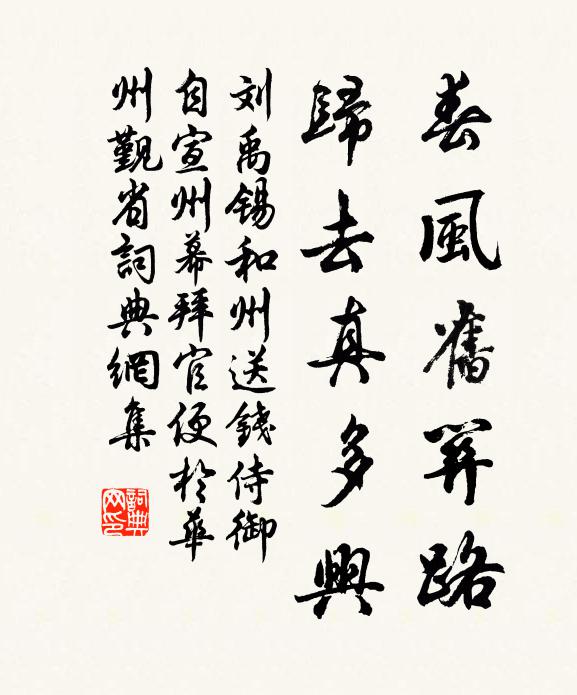 春風舊關路
歸去真多興
刘禹錫和州送錢侍御
自宣州幕拜官便於華
州覲省詞典網集
詞典
网印